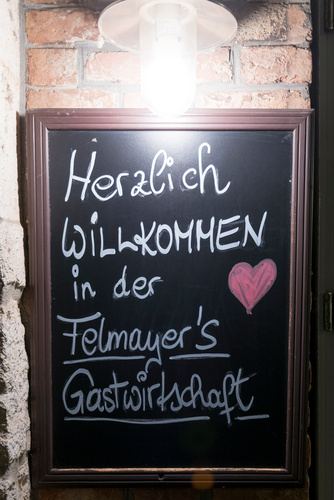 Herzlich
WILLKOMMEN
in der
Felmayer's
Gastwirtschaft